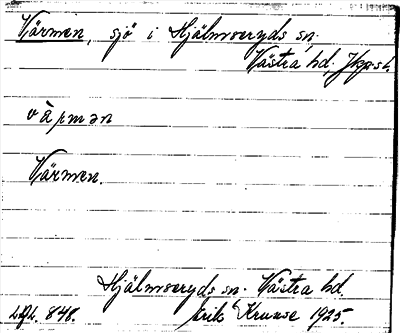 Värmen, sjö i Hjälmseryds sn,
Västra hd. Jkp.sl.
vàrmən
Värmen.
Hjälmseryds sn. Västra hd
Lbfl. 848. Erik Kruuse 1925